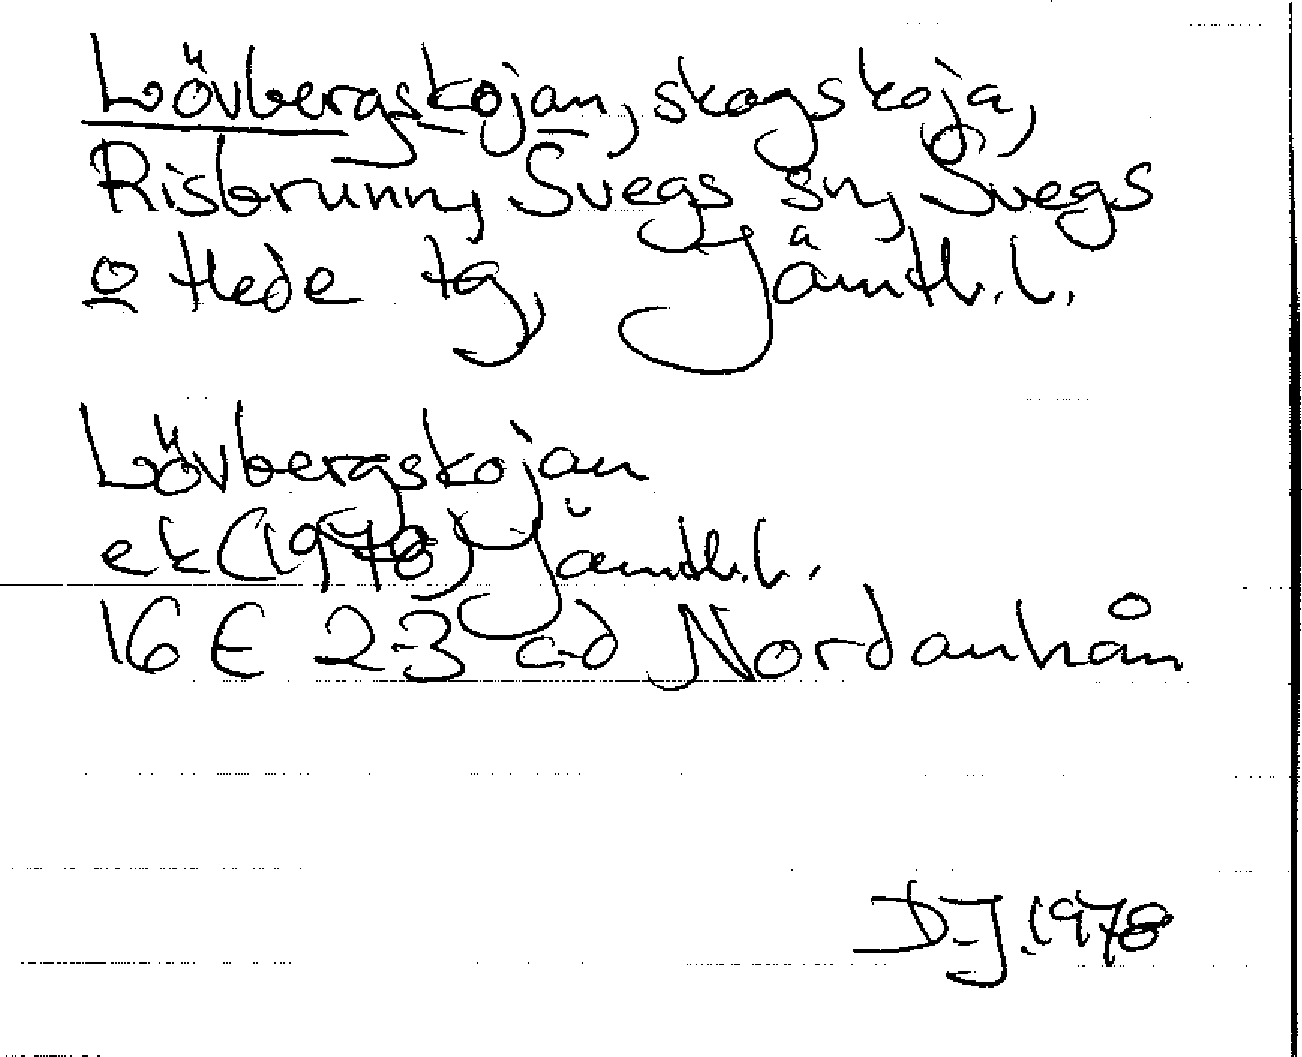 Lövbergskojan, skogskoja,
Risbrunn, Svegs sn, Svegs
o Hede tg, Jämtl. l.
Lövbergskojan
ek (1978) Jämtl. l.
16 E 2-3 c-d Nordanhån
D-J. 1978